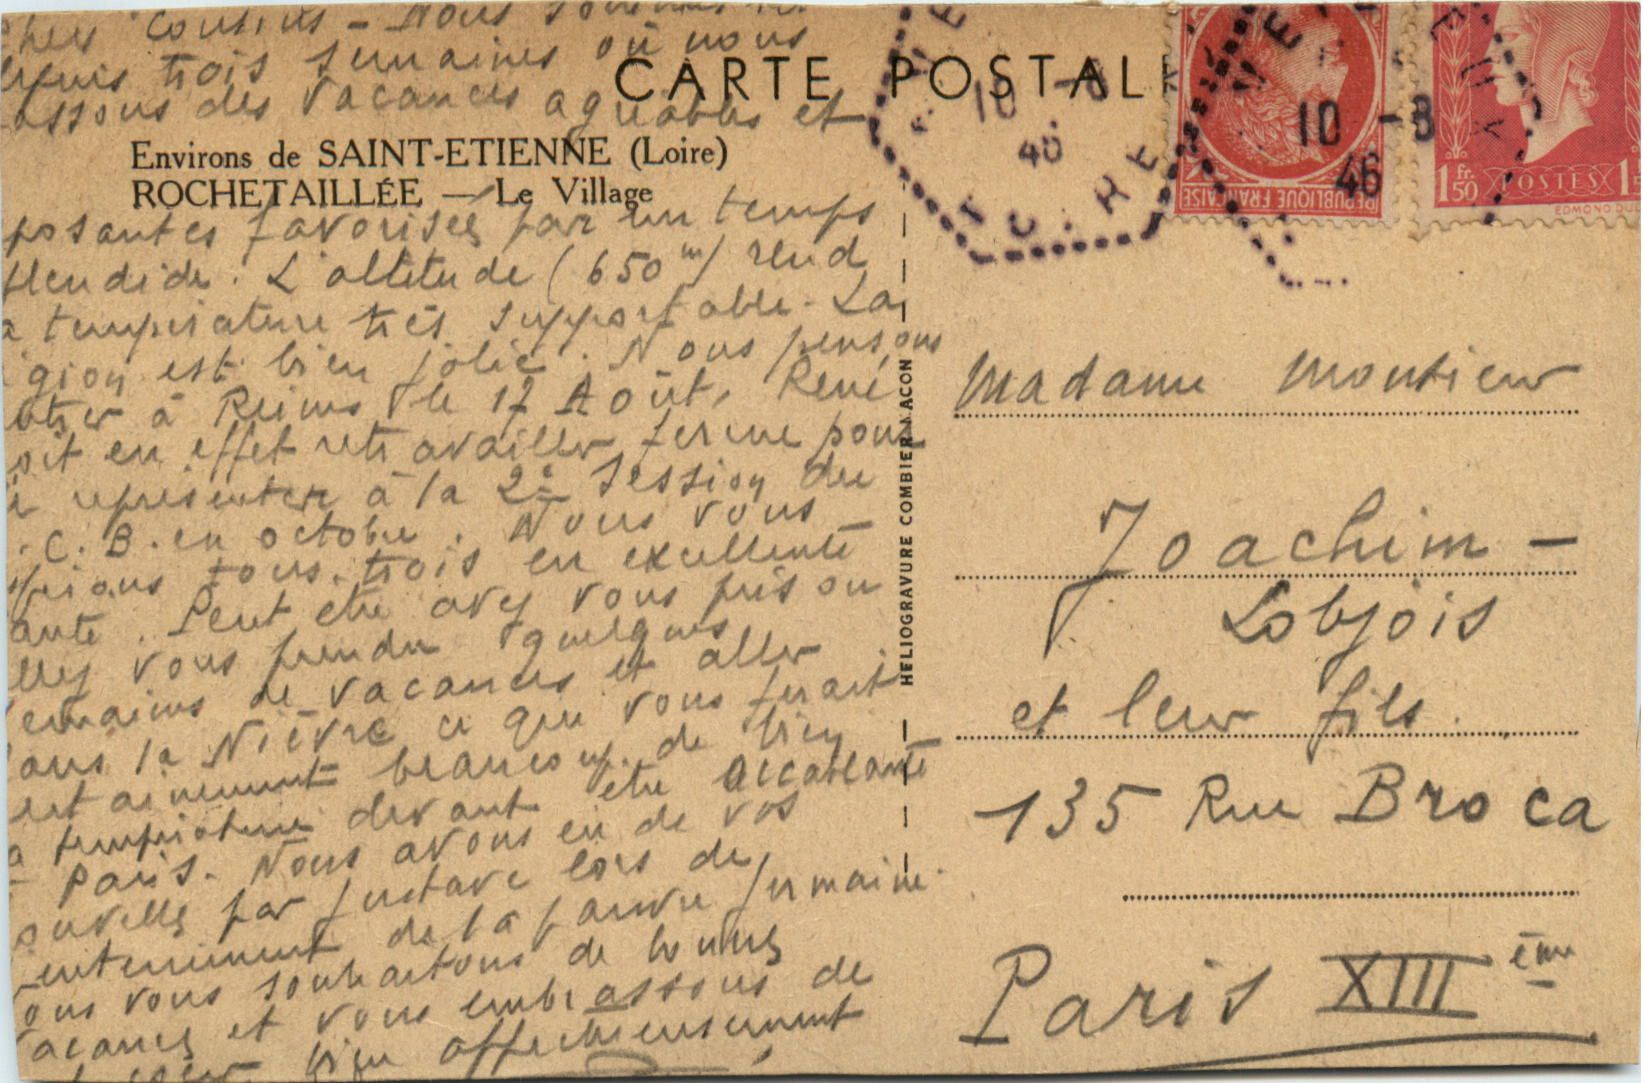 cher Cousins - Nous sommes
depuis trois semaines où nous
passons des vacances agréables et
CARTE POSTALE
Environs de SAINT-ETIENNE (Loire)
ROCHETAILLÉE — Le Village
posantes favorisées par un temps
splendide. L'altitude (650 m) rend
a température très supportable. La
égion est bien jolie. Nous pensons
ntrer à Reims le 17 Août, René
oit en effet retravailler ferme pour
se représenter à la 2e Session du
. C. B. en octobre. Nous vous
espérons tous trois en excellente
anté. Peut etre avez vous pris ou
llez vous prendre quelques
semaines de vacances et aller
ans la Nièvre ce qui vous ferait
ertainement beaucoup de bien
a température devant etre accablante
à Paris. Nous avons eu de vos
ouvelles par Gustave lors de
'enterrement de la pauvre Germaine.
ous vous souhaitons de bonnes
acances et vous embrassons de
bien affectueusement
HELIOGRAVURE COMBIER MACON
10 -8
46
10 -8
46
REPUBLIQUE FRANÇAISE
1fr.50 POSTES 1
EDMOND DUL
Madame Monsieur
Joachim -
Lobjois
et leur fils.
135 Rue Broca
Paris XIII ème